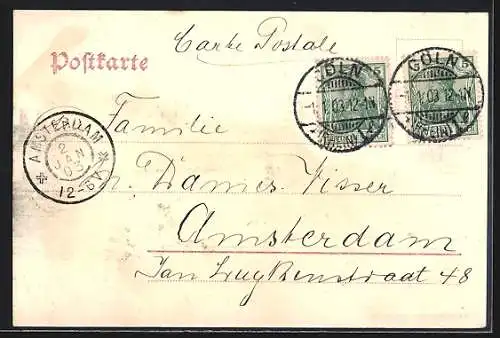 Carte Postale
Postkarte
CÖLN
1 03 12-1N
*(RHEIN)1*
CÖLN
1 03 12-1N
*(RHEIN)1*
Familie
AMSTERDAM
2 JAN 03
12-6V
Damés Visser
Amsterdam
Jan Luykenstraat 48